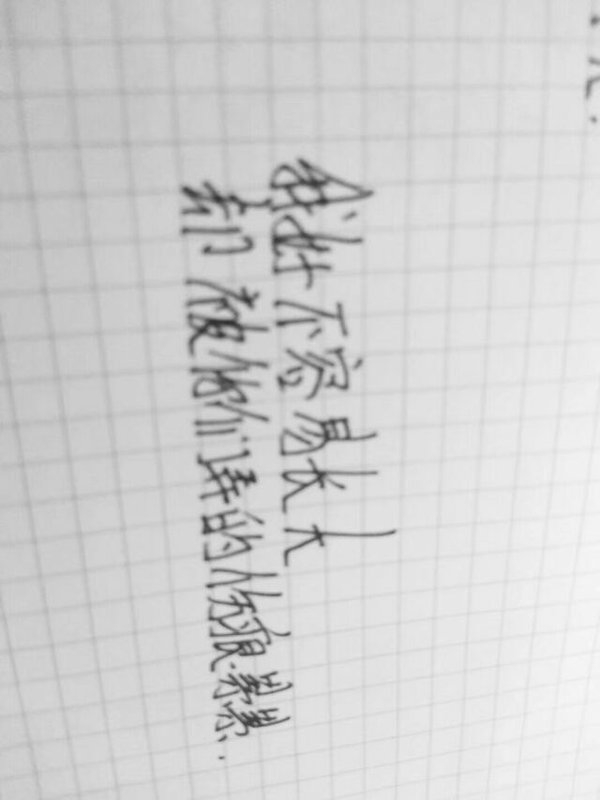 我好不容易长大
被你们弄的伤痕累累..